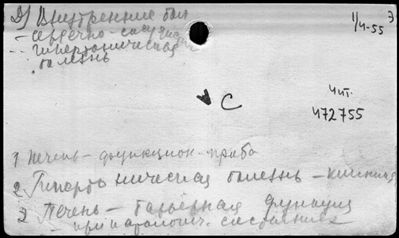 2) Внутренние бол
1/4-55
- сердечно-сосудист
- гипертоническая
болезнь
С
Чит.
472755
1 Печень - функцион. проба
2 Гипертоническая болезнь - клиника
3 Печень - барьерная функция
- при патологич. состояниях